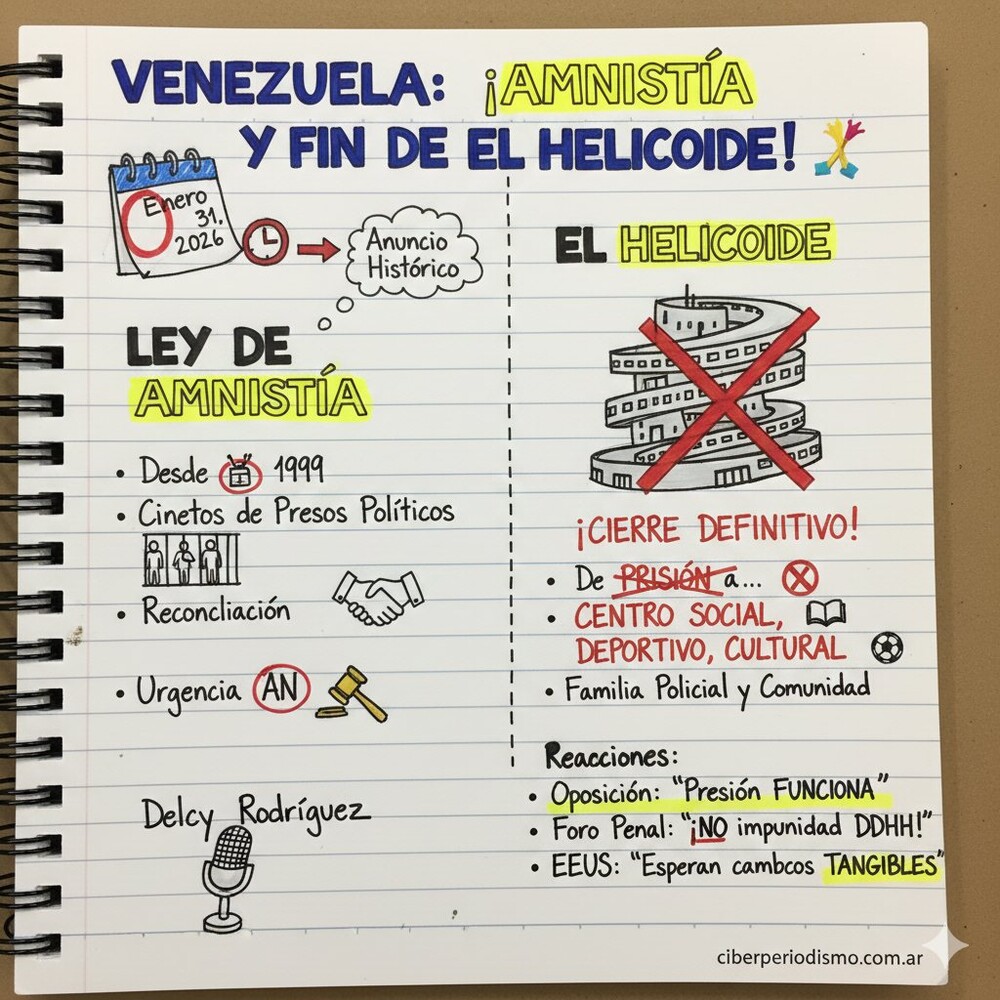 VENEZUELA: ¡AMNISTÍA
Y FIN DE EL HELICOIDE!
Enero
31,
2026
Anuncio
Histórico
LEY DE
AMNISTÍA
• Desde 1999
• Cinetos de Presos Políticos
• Reconcliación
• Urgencia AN
Delcy Rodríguez
EL HELICOIDE
¡CIERRE DEFINITIVO!
• De PRISIÓN a...
• CENTRO SOCIAL,
DEPORTIVO, CULTURAL
• Familia Policial y Comunidad
Reacciones:
• Oposición: "Presión FUNCIONA"
• Foro Penal: "¡NO impunidad DDHH!"
• EEUS: "Esperan cambcos TANGIBLES"
ciberperiodismo.com.ar